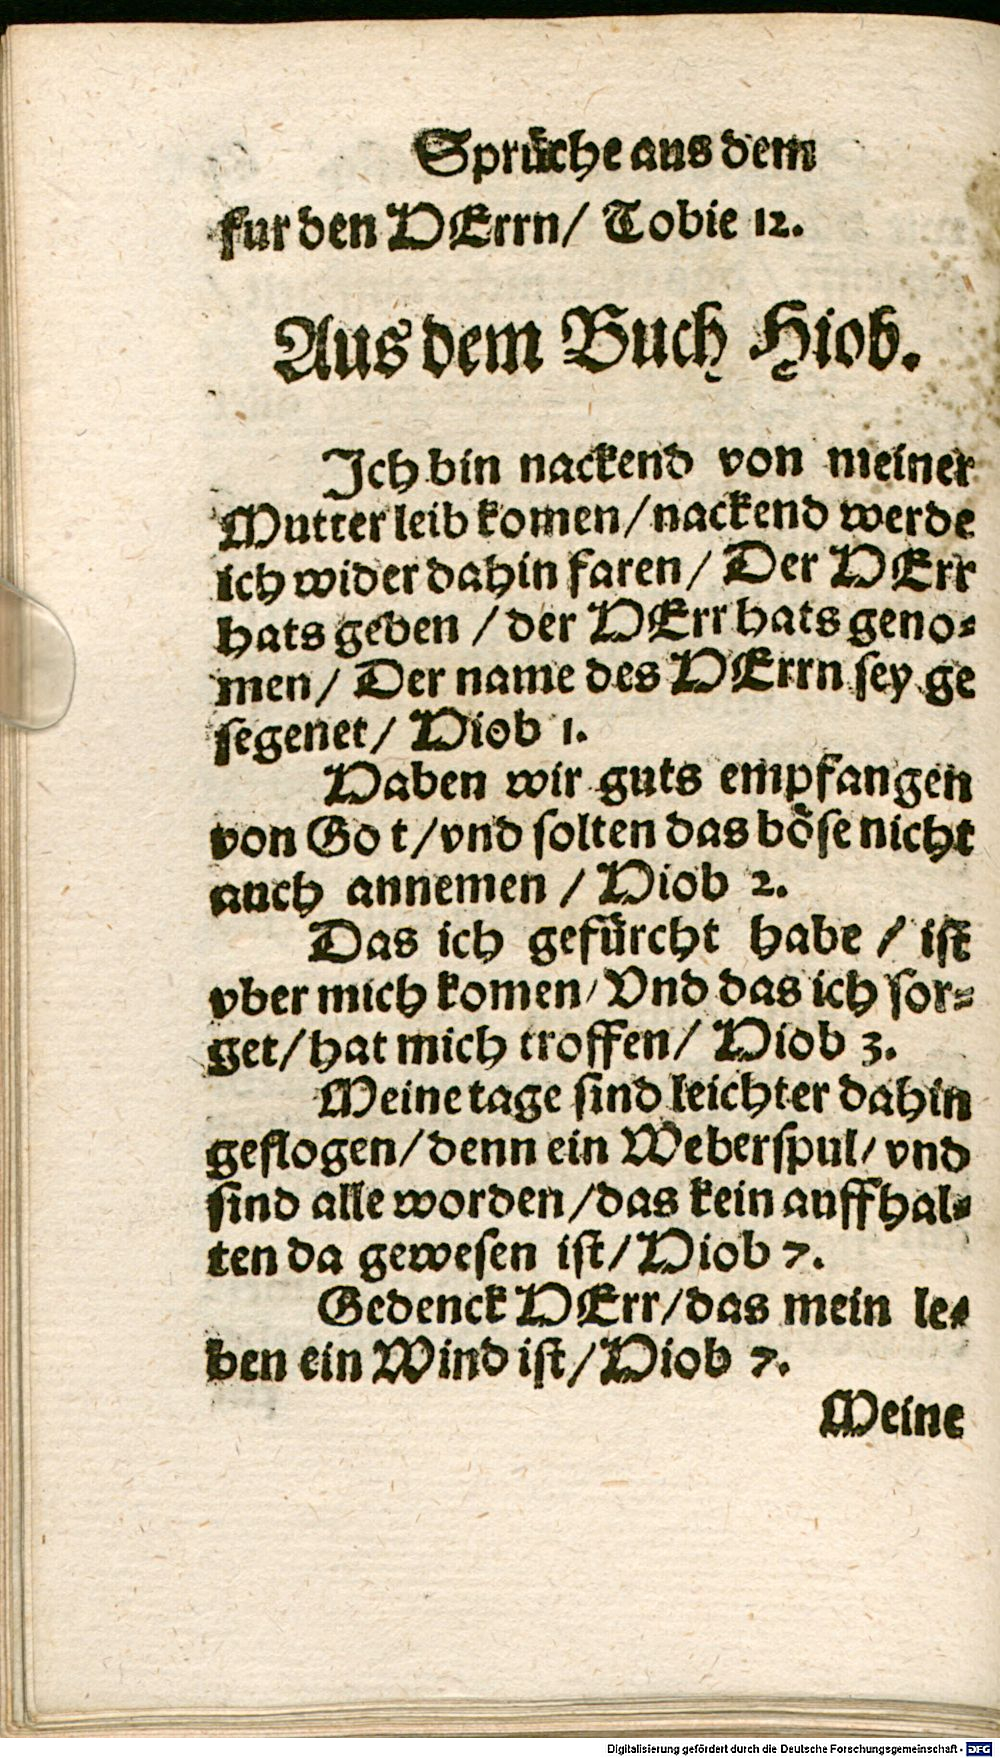 Sprüche aus dem
fur den HErrn/ Tobie 12.
Aus dem Buch Hiob.
Ich bin nackend von meiner
Mutter leib komen/nackend werde
ich wider dahin faren/ Der HErr
hats geben / der HErr hats geno-
men/ Der name des HErrn sey ge
segenet/ Hiob 1.
Haben wir guts empfangen
von Go t/vnd solten das böse nicht
auch annemen / Hiob 2.
Das ich gefürcht habe / ist
vber mich komen/ Vnd das ich sor-
get/hat mich troffen/ Hiob 3.
Meine tage sind leichter dahin
geflogen/denn ein Weberspul/ vnd
sind alle worden/das kein auffhal-
ten da gewesen ist/Hiob 7.
Gedenck HErr/das mein le-
ben ein Wind ist/Hiob 7.
Meine
Digitalisierung gefördert durch die Deutsche Forschungsgemeinschaft - DFG